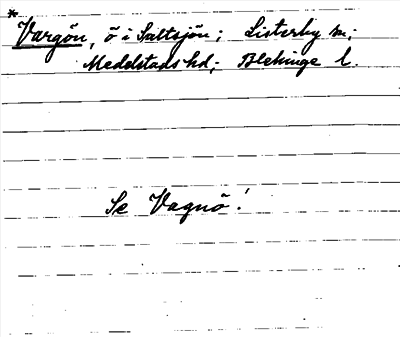 *
Vargön, ö i Saltsjön; Listerby sn;
Medelstads hd; Blekinge l.
Se Vagnö!